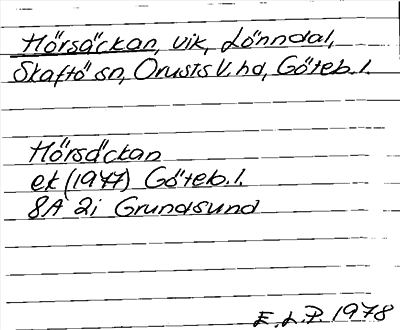 Hörsäckan, vik, Lönndal,
Skaftö sn, Orusts V. hd, Göteb. l.
Hörsäckan
ek (1977) Göteb. l.
8A 2i Grundsund
E. L. P. 1978